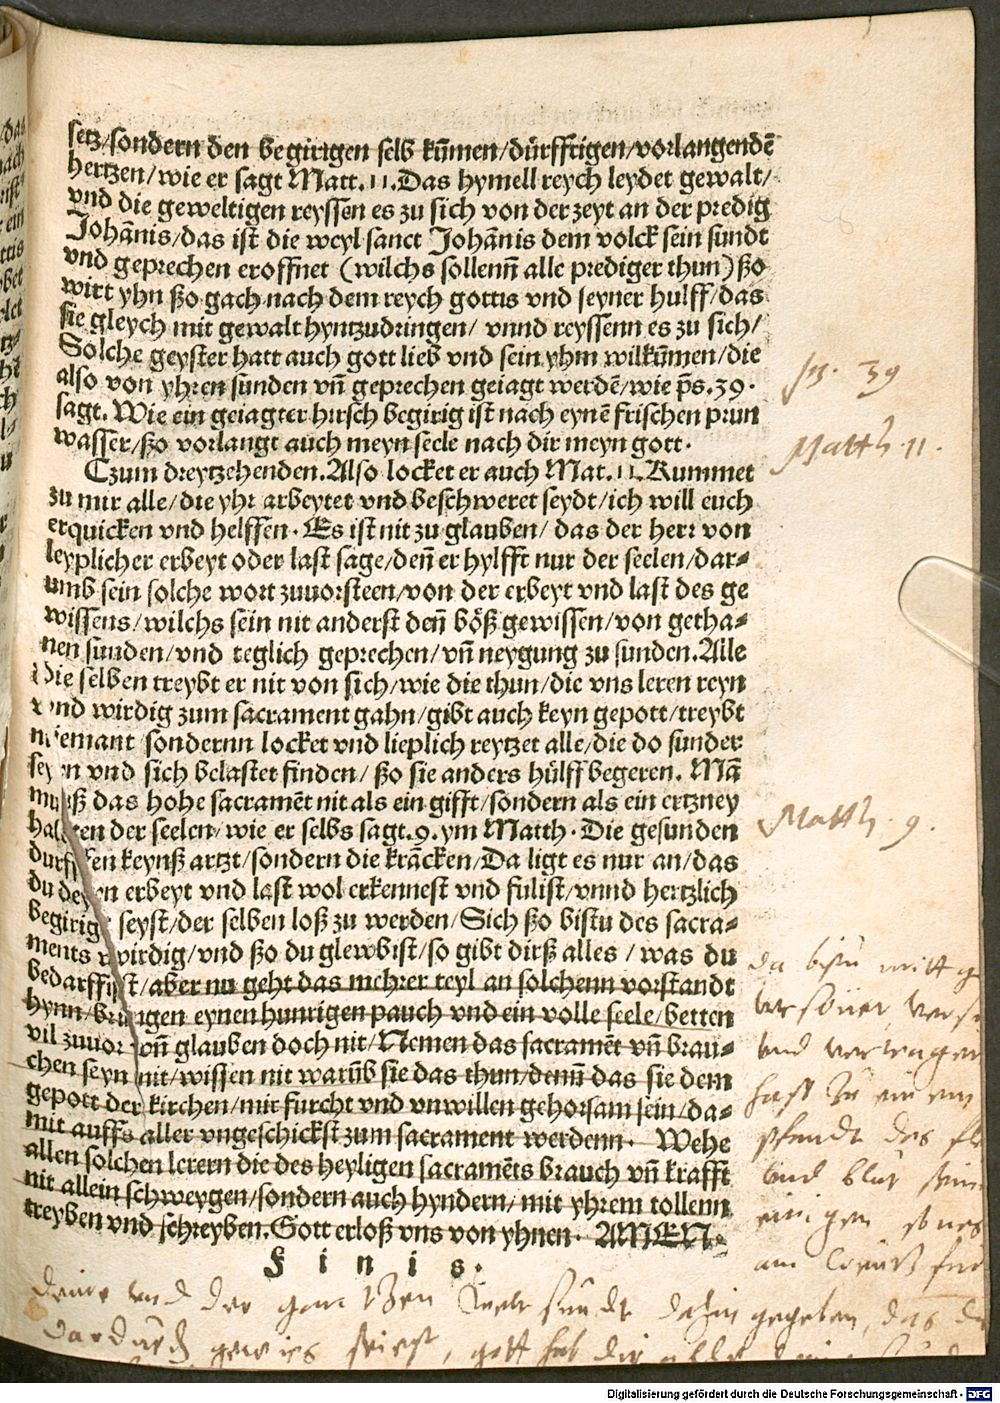 setz/sondern den begirigen selb kūmen/dürfftigen/vorlangendē
hertzen/wie er sagt Matt.11.Das hymell reych leydet gewalt/
vnd die geweltigen reyssen es zu sich von der zeyt an der predig
Johānis/das ist die weyl sanct Johānis dem volck sein sundt
vnd geprechen eroffnet (wilchs sollenn̄ alle prediger thun)ßo
wirt yhn ßo gach nach dem reych gottis vnd seyner hulff/das
sie gleych mit gewalt hyntzudringen/ vnnd reyssenn es zu sich/
Solche geyster hatt auch gott lieb vnd sein yhm wilkūmen/die
also von yhren sunden vn̄ geprechen geiagt werdē/wie p̄s.39.
sagt. Wie ein geiagter hirsch begirig ist nach eynē frischen prun
wasser/ßo vorlangt auch meyn seele nach dir meyn gott.
Czum dreytzehenden.Also locket er auch Mat.11.Kummet
zu mir alle/die yhr arbeytet vnd beschweret seydt/ich will euch
erquicken vnd helffen. Es ist nit zu glauben/ das der herr von
leyplicher erbeyt oder last sage/den̄ er hylfft nur der seelen/dar-
umb sein solche wort zuuorsteen/von der erbeyt vnd last des ge
wissens/wilchs sein nit anderst den̄ böß gewissen/von getha-
nen sunden/vnd teglich geprechen/vn̄ neygung zu sunden.Alle
die selben treybt er nit von sich/wie die thun/die vns leren reyn
vnd wirdig zum sacrament gahn/gibt auch keyn gepott/treybt
niemant sondernn locket vnd lieplich reytzet alle/die do sunder
seyn vnd sich belastet finden/ ßo sie anders hülff begeren. Mā
muß das hohe sacramēt nit als ein gifft/sondern als ein ertzney
halten der seelen/wie er selbs sagt.9.ym Matth. Die gesunden
durffen keynß artzt/sondern die krācken/Da ligt es nur an/das
du deyn erbeyt vnd last wol erkennest vnd fulist/vnnd hertzlich
begirig seyst/der selben loß zu werden/Sich ßo bistu des sacra-
ments wirdig/vnd ßo du glewbist/so gibt dirß alles / was du
bedarffist/aber nu geht das mehrer teyl an solchenn vorstandt
hynn/bringen eynen hunrigen pauch vnd ein volle seele/betten
vil zuuor von̄ glauben doch nit/Nemen das sacramēt vn̄ brau-
chen seyn nit/wissen nit warūb sie das thun/denn̄ das sie dem
gepott der kirchen/mit furcht vnd vnwillen gehorsam sein/da-
mit auffs aller vngeschickst zum sacrament werdenn. Wehe
allen solchen lerern die des heyligen sacramēts brauch vn̄ krafft
nit allein schweygen/sondern auch hyndern/ mit yhrem tollenn
treyben vnd schreyben.Gott erloß vns von yhnen. AMEN.
Finis.
39
Matth. 11.
Matth. 9.
da bistu mitt
vnd
hast zu
pfandt des
vnd blut
einigen
am
deine vnd der gantzen welt sundt dahin gegeben, das
dardurch gewies seiest, gott hab dir alle
Digitalisierung gefördert durch die Deutsche Forschungsgemeinschaft - DFG